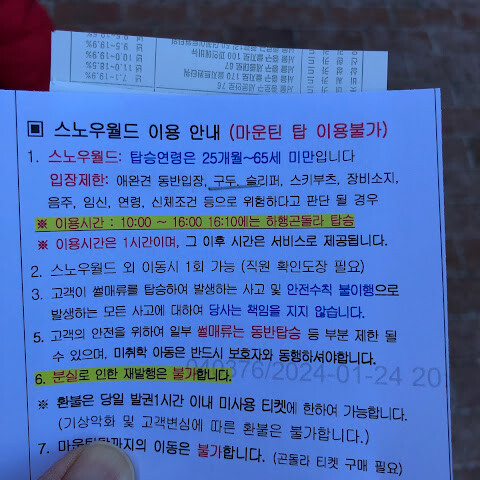 ■ 스노우월드 이용 안내 (마운틴 탑 이용불가)
1. 스노우월드: 탑승연령은 25개월~65세 미만입니다
입장제한: 애완견 동반입장, 구두, 슬리퍼, 스키부츠, 장비소지,
음주, 임신, 연령, 신체조건 등으로 위험하다고 판단 될 경우
※ 이용시간 : 10:00 ~ 16:00 16:10에는 하행곤돌라 탑승
※ 이용시간은 1시간이며, 그 이후 시간은 서비스로 제공됩니다.
2. 스노우월드 외 이동시 1회 가능 (직원 확인도장 필요)
3. 고객이 썰매류를 탑승하여 발생하는 사고 및 안전수칙 불이행으로
발생하는 모든 사고에 대하여 당사는 책임을 지지 않습니다.
5. 고객의 안전을 위하여 일부 썰매류는 동반탑승 등 부분 제한 될
수 있으며, 미취학 아동은 반드시 보호자와 동행하셔야합니다.
040376/2024-01-24 20
6. 분실로 인한 재발행은 불가합니다.
※ 환불은 당일 발권1시간 이내 미사용 티켓에 한하여 가능합니다.
(기상악화 및 고객변심에 따른 환불은 불가합니다.)
7. 마운틴탑까지의 이동은 불가합니다. (곤돌라 티켓 구매 필요)